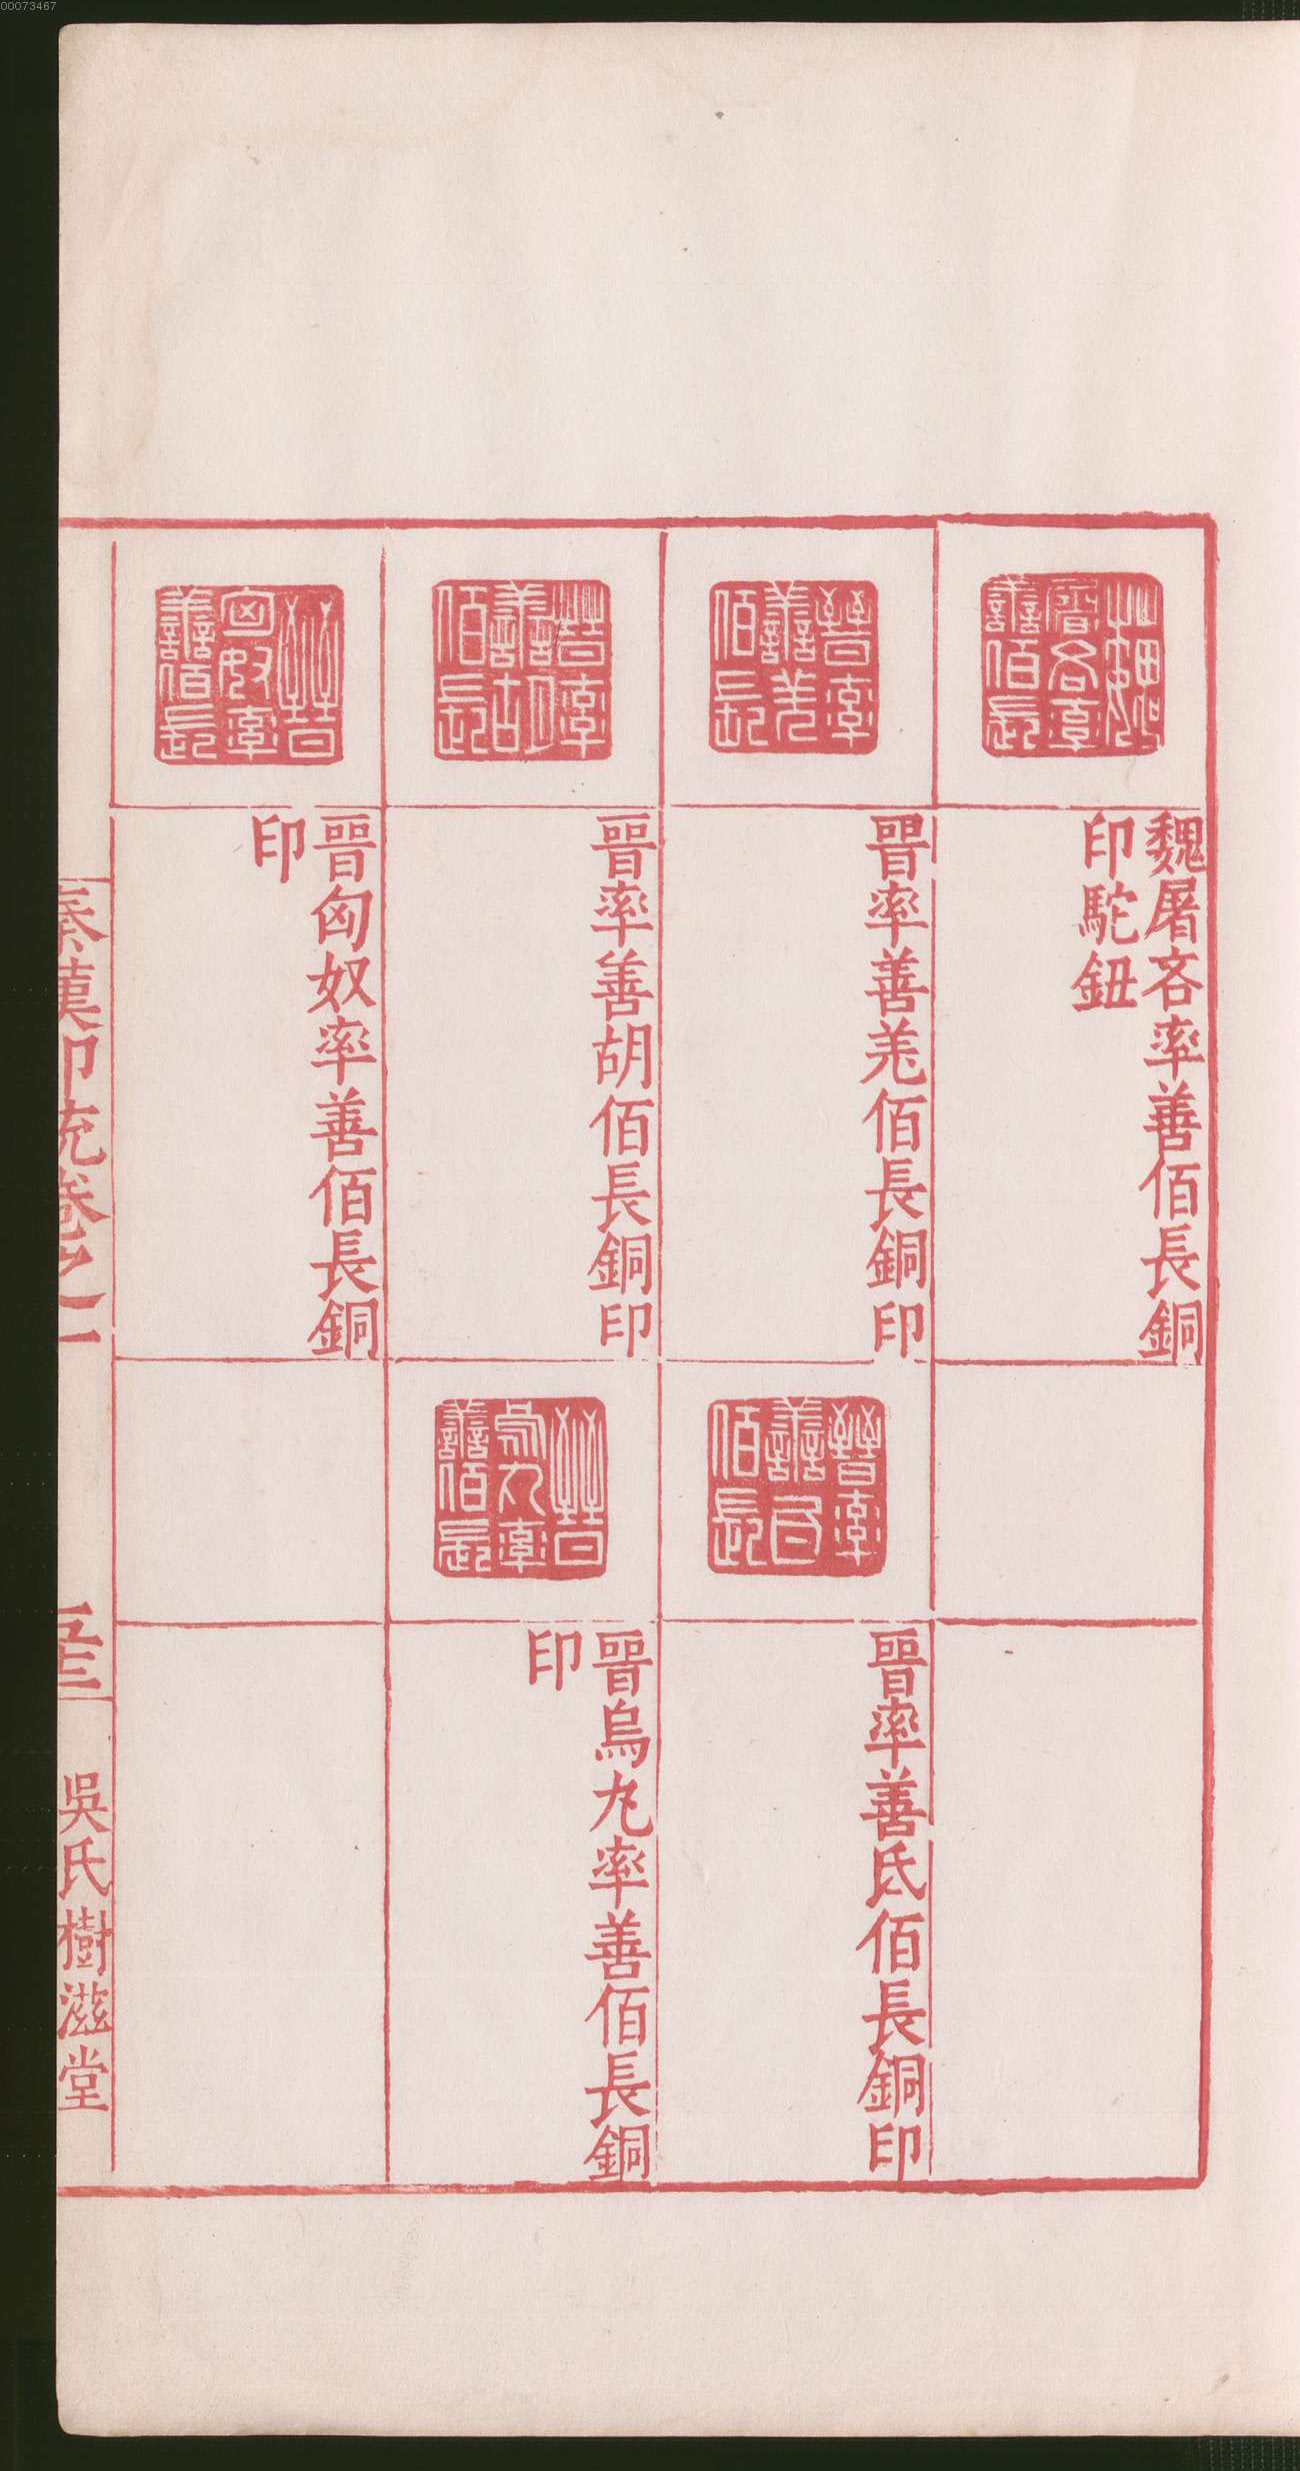 00073467
魏屠各率善佰長
魏屠各率善佰長銅
印駝鈕
晉率善羌佰長
晉率善羌佰長銅印
晉率善氐佰長
晉率善氐佰長銅印
晉率善胡佰長
晉率善胡佰長銅印
晉烏丸率善佰長
晉烏丸率善佰長銅
印
晉匈奴率善佰長
晉匈奴率善佰長銅
印
秦漢印統卷之一
五十三
吳氏樹滋堂